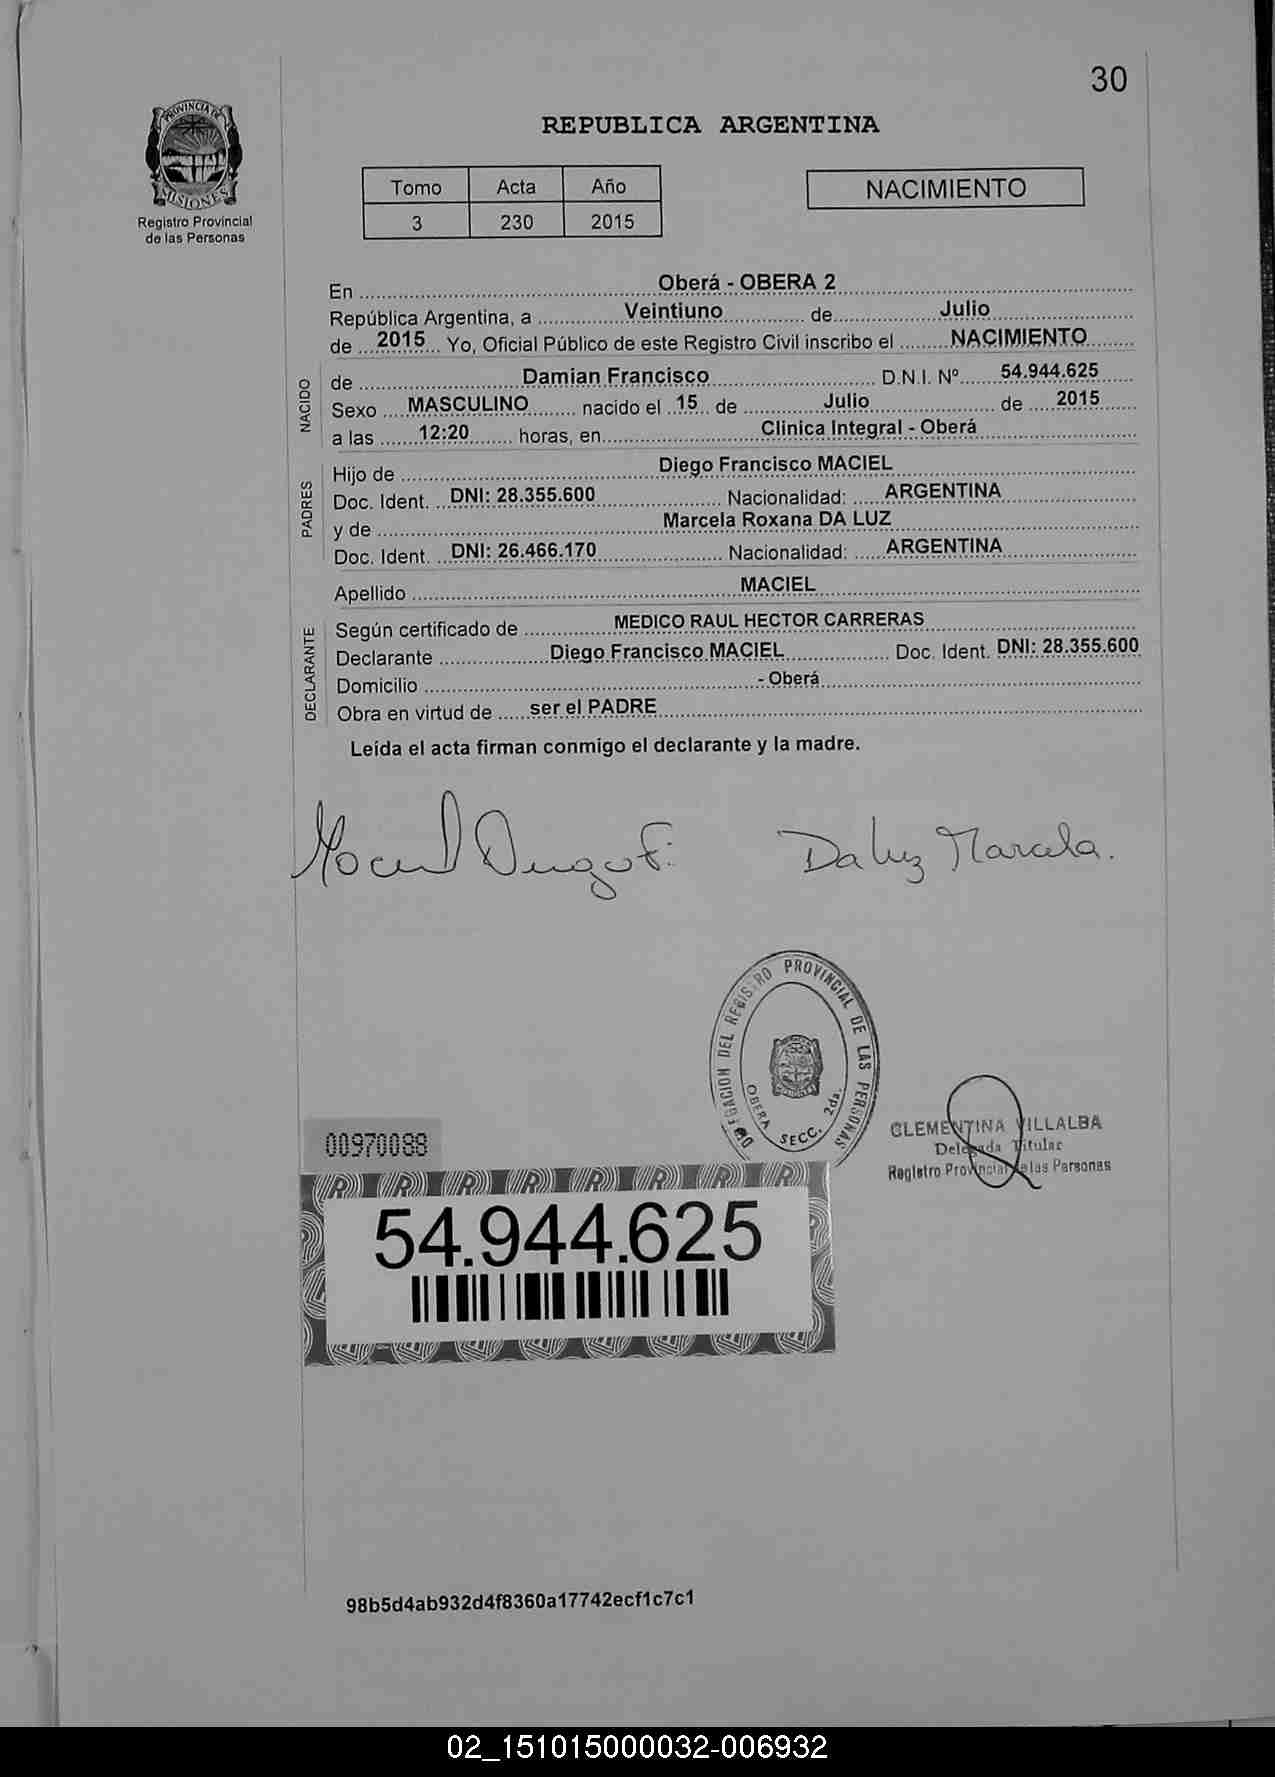 30
PROVINCIA DE
MISIONES
Registro Provincial
de las Personas
REPUBLICA ARGENTINA
Tomo Acta Año
3 230 2015
NACIMIENTO
En Oberá - OBERA 2
República Argentina, a Veintiuno de Julio
de 2015 Yo, Oficial Público de este Registro Civil inscribo el NACIMIENTO
NACIDO
de Damian Francisco D.N.I. Nº 54.944.625
Sexo MASCULINO nacido el 15 de Julio de 2015
a las 12:20 horas, en Clinica Integral - Oberá
PADRES
Hijo de Diego Francisco MACIEL
Doc. Ident. DNI: 28.355.600 Nacionalidad: ARGENTINA
y de Marcela Roxana DA LUZ
Doc. Ident. DNI: 26.466.170 Nacionalidad: ARGENTINA
Apellido MACIEL
DECLARANTE
Según certificado de MEDICO RAUL HECTOR CARRERAS
Declarante Diego Francisco MACIEL Doc. Ident. DNI: 28.355.600
Domicilio - Oberá
Obra en virtud de ser el PADRE
Leída el acta firman conmigo el declarante y la madre.
Maciel Diego F.
Da luz Marcela.
DELEGACION DEL REGISTRO PROVINCIAL DE LAS PERSONAS
OBERA SECC. 2da.
CLEMENTINA VILLALBA
Delegada Titular
Registro Provincial de las Personas
00970088
54.944.625
98b5d4ab932d4f8360a17742ecf1c7c1
02_151015000032-006932